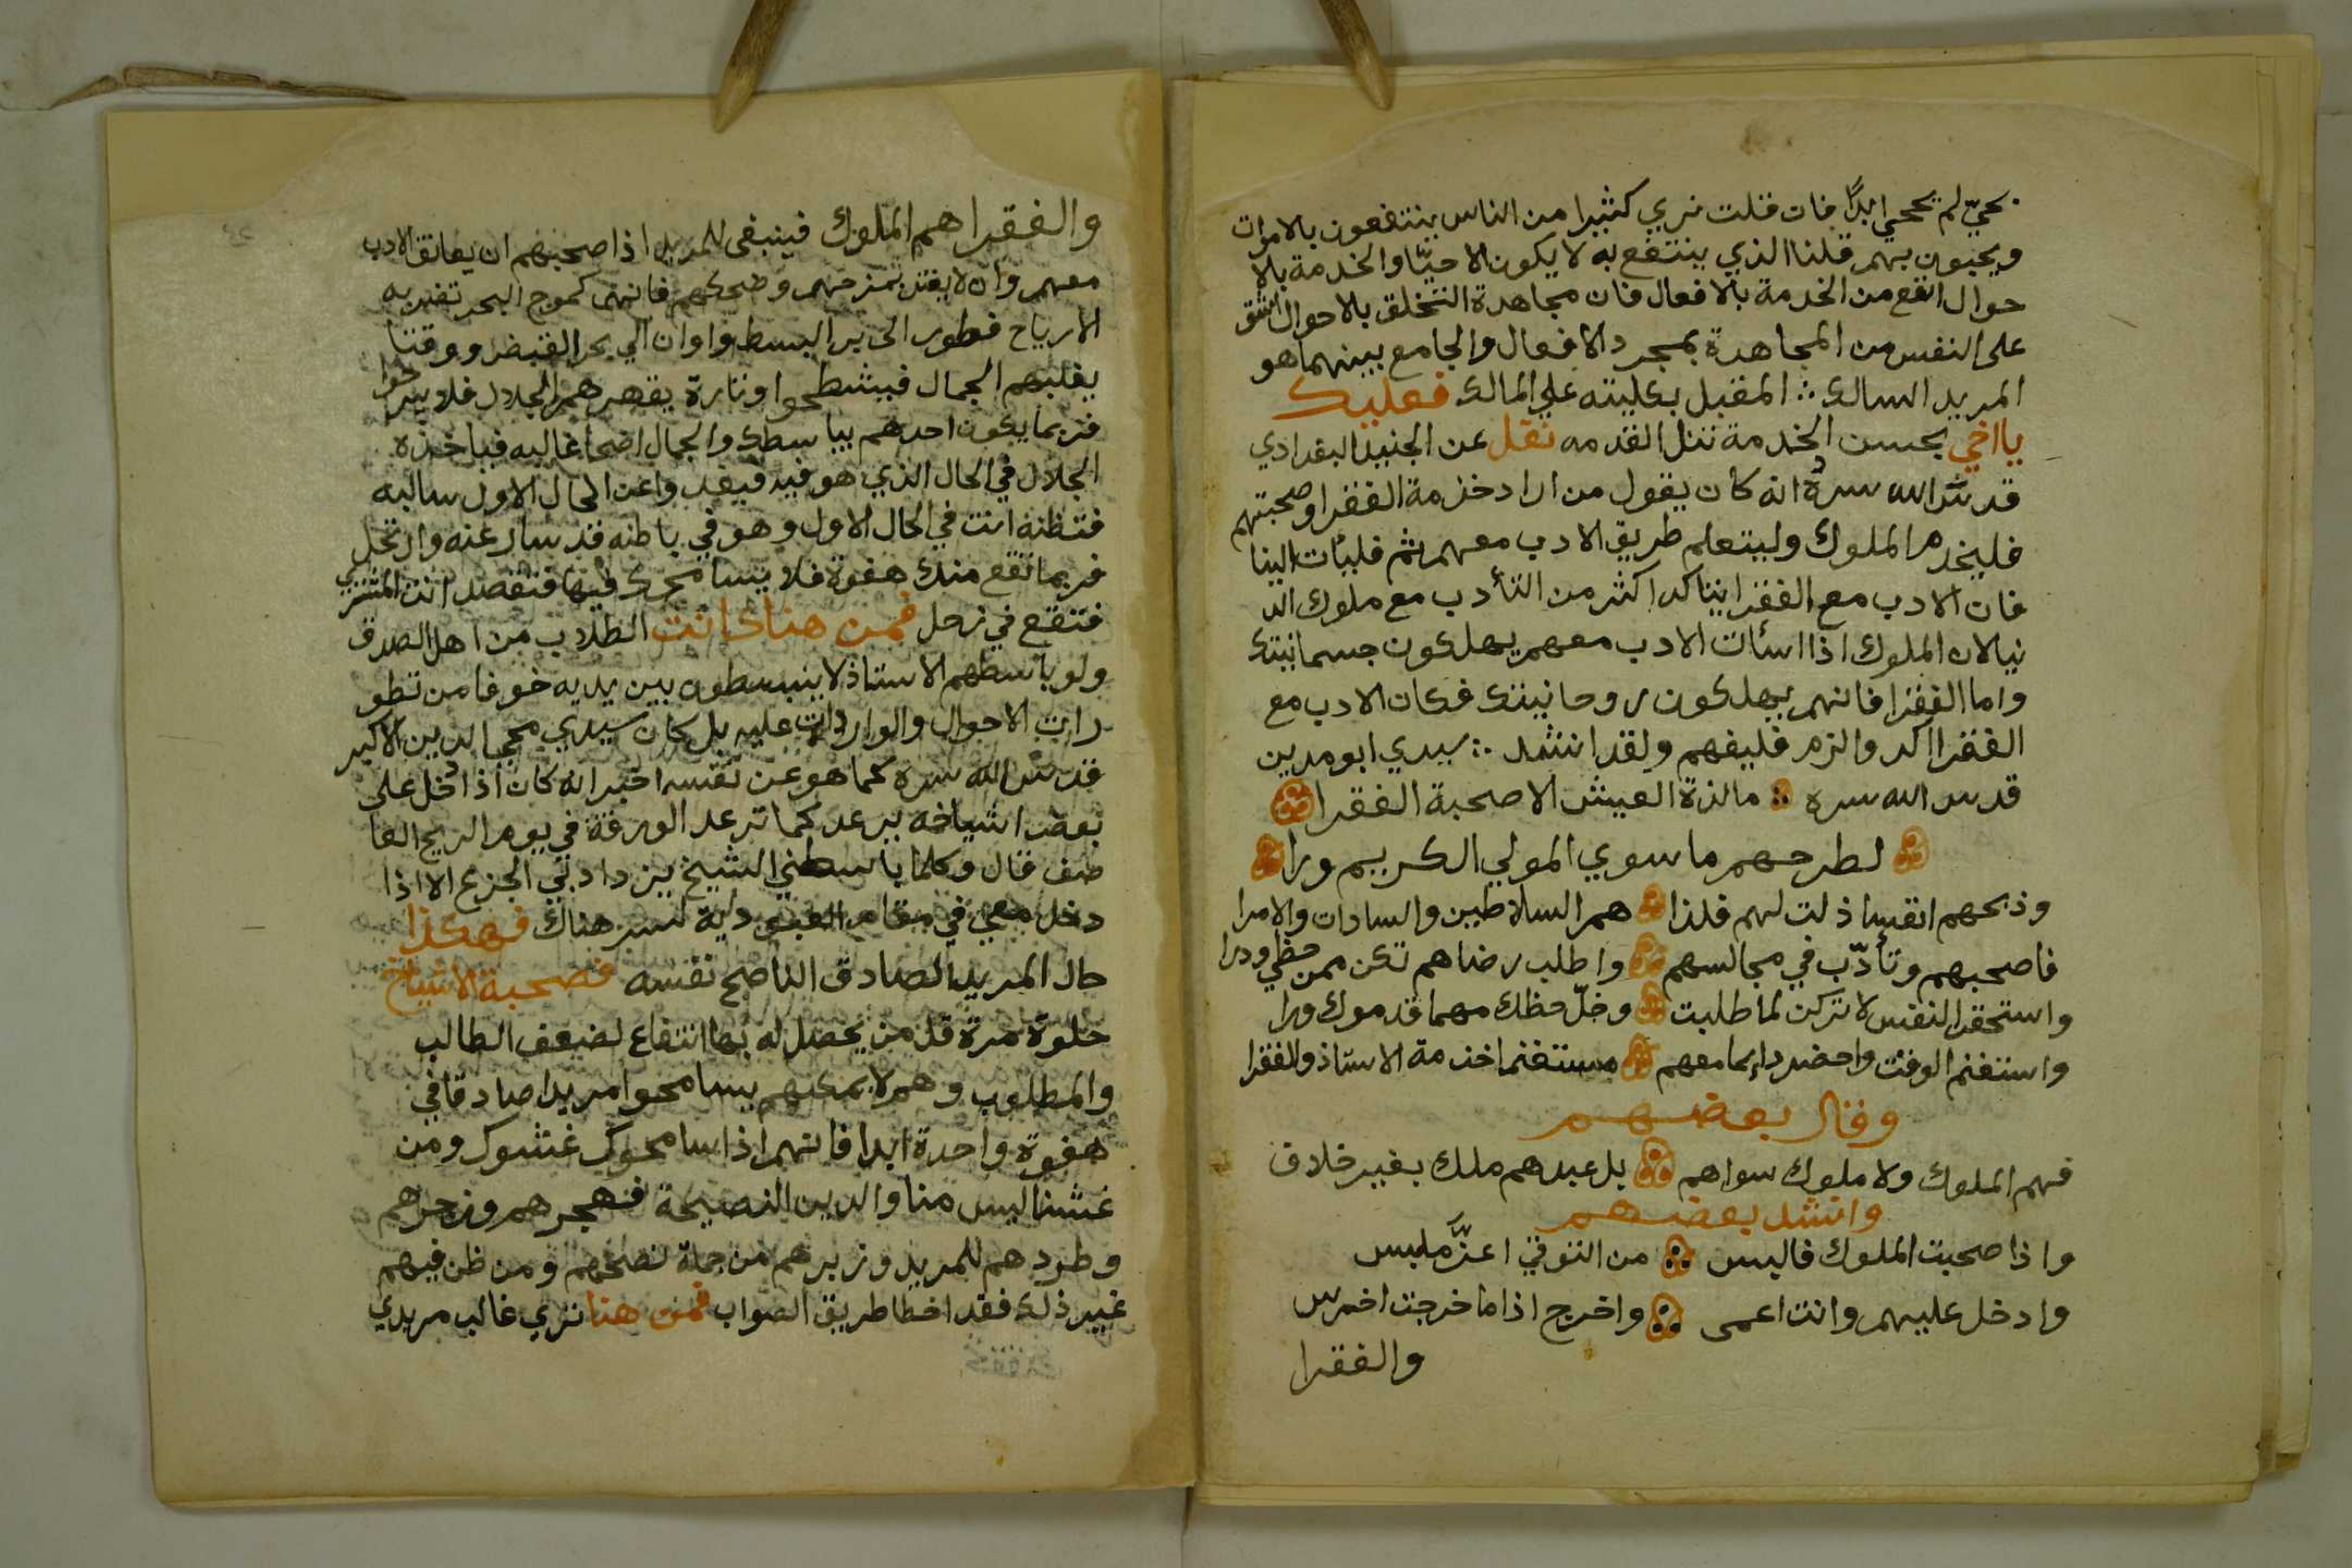 بحيّ لم يحيي ابدًا فان قلت نري كثيرا من الناس ينتفعون بالاموات
ويحيون بهم قلنا الذي ينتفع به لا يكون الا حيّا والخدمة بالا
حوال انفع من الخدمة بالافعال فان مجاهدة التخلق بالاحوال اشق
على النفس من المجاهدة بمجرد الافعال والجامع بينهما هو
المريد السالك ∴ المقبل بكليته علي المالك فعليك
يا اخي بحسن الخدمة تنل القدمه نقل عن الجنيد البغدادي
قدس الله سره انه كان يقول من اراد خدمة الفقرا وصحبتهم
فليخدم الملوك وليتعلم طريق الادب معهم ثم فليأت الينا
فان الادب مع الفقرا يتاكد اكثر من التأدب مع ملوك الد
نيا لان الملوك اذا اسأت الادب معهم يهلكون جسمانيتك
واما الفقرا فانهم يهلكون روحانيتك فكان الادب مع
الفقرا اكد والزم فليفهم ولقد انشد ∴ سيدي ابو مدين
قدس الله سره ما لذة العيش الا صحبة الفقرا
لطرحهم ما سوي المولي الكريم ورا
وذبحهم انفسا ذلت لهم فلذا هم السلاطين والسادات والامرا
فاصحبهم وتأدّب في مجالسهم واطلب رضاهم تكن ممن حظي ودرا
واستحقر النفس لا تركن لما طلبت وخلّ حظك مهما قدموك ورا
واستغنم الوقت واحضر دايما معهم مستغنما خدمة الاستاذ والفقرا
وقال بعضهم
فهم الملوك ولا ملوك سواهم بل عبدهم ملك بغير خلاف
وانشد بعضهم
واذا صحبت الملوك فالبس من التوقي اعزّ ملبس
وادخل عليهم وانت اعمى واخرج اذا ما خرجت اخرس
والفقرا
والفقرا هم الملوك فينبغى للمريد اذا صحبهم ان يعانق الادب
معهم وان لا يغتر بمزحهم وضحكهم فانهم كموج البحر تضربه
الارياح فطورا الى بر البسط واوان الي بحر القبض ووقتا
يغلبهم الجمال فيشطحوا وتارة يقهرهم الجلال فلا يبرحوا
فربما يكون احدهم يباسطك والجمال اضحا غالبه فياخذه
الجلال في الحال الذي هو فيه فيغدوا عن الحال الاول سالبه
فتظنه انت في الحال الاول وهو في باطنه قد سار عنه وارتحل
فربما تقع منك هفوة فلا يسامحك فيها فتقصد انت المشتري
فتقع في زحل فمن هنا كانت الطلاب من اهل الصدق
ولو باسطهم الاستاذ لا ينبسطون بين يديه خوفا من تطو
رات الاحوال والواردات عليه بل كان سيدي محيي الدين الاكبر
قدس الله سره كما هو عن نفسه اخبر انه كان اذا دخل على
بعض اشياخه يرعد كما ترعد الورقة في يوم الريح العا
صف قال وكلما باسطني الشيخ يزداد بي الجزع الا اذا
دخل معي في مقام العبودية لسر هناك فهكذا
حال المريد الصادق الناصح نفسه فصحبة الاشياخ
حلوة مرة قل من يحصل له بها انتفاع لضعف الطالب
والمطلوب وهم لا يمكنهم يسامحوا مريدا صادقا في
هفوة واحدة ابدا فانهم اذا سامحوك غشوك ومن
غشنا ليس منا والدين النصيحة فهجرهم وزجرهم
وطردهم للمريد وزبرهم من جملة نصحهم ومن ظن فيهم
غير ذلك فقد اخطا طريق الصواب فمن هنا نري غالب مريدي